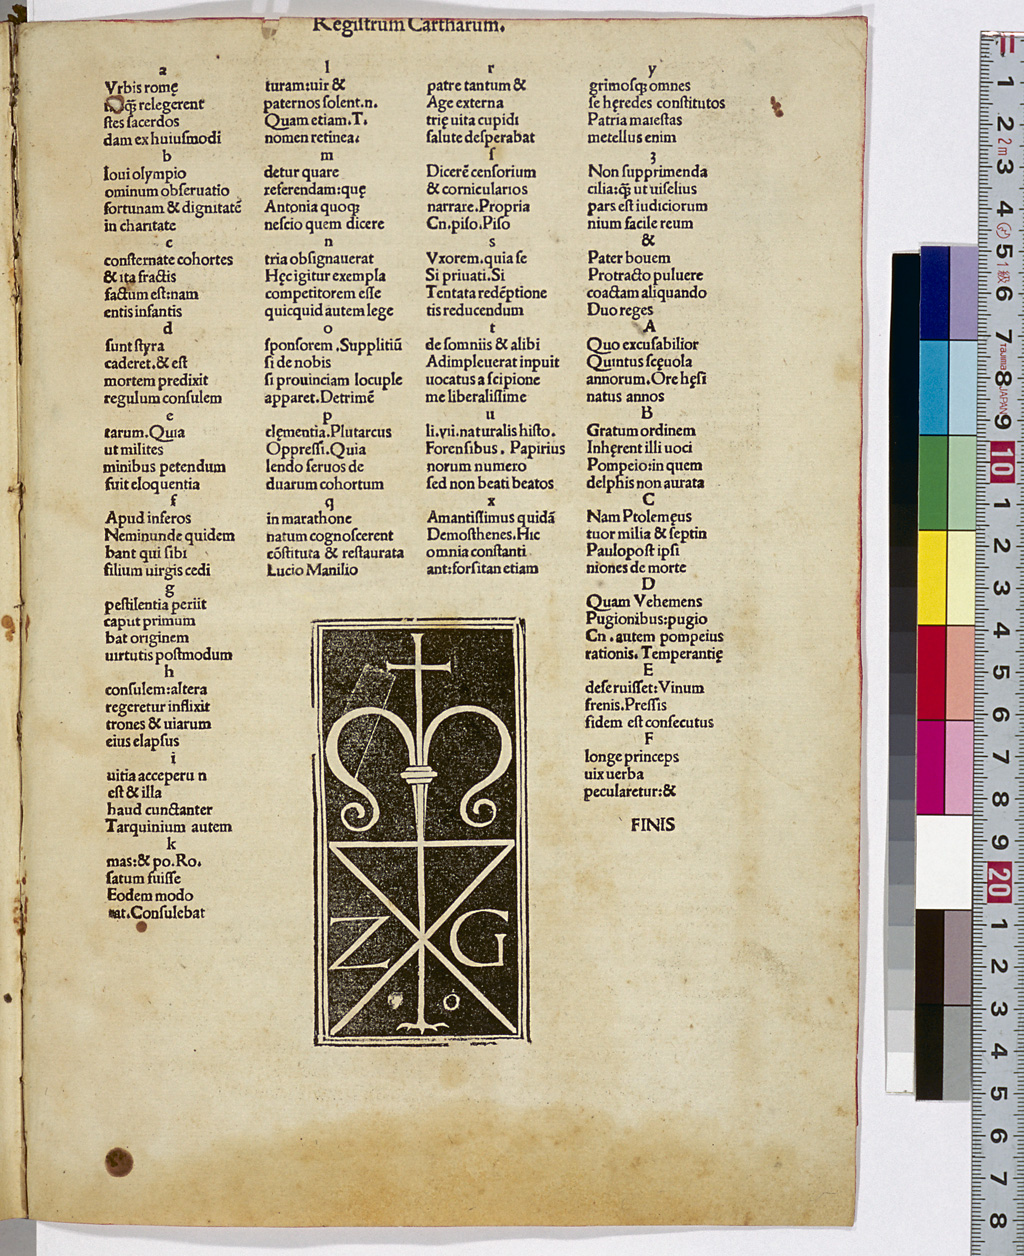 Regiſtrum Cartharum.
a
Vrbis romę
relegerent
ſtes ſacerdos
dam ex huiuſmodi
b
Ioui olympio
ominum obſeruatio
fortunam & dignitatē
in charitate
c
conſternate cohortes
& ita fractis
factum eſt:nam
entis infantis
d
ſunt ſtyra
caderet.& eſt
mortem predixit
regulum conſulem
e
tarum.Quia
ut milites
minibus petendum
fuit eloquentia
f
Apud inferos
Neminunde quidem
bant qui ſibi
filium uirgis cedi
g
peſtilentia periit
caput primum
bat originem
uirtutis poſtmodum
h
conſulem:altera
regeretur inflixit
trones & uiarum
eius elapſus
i
uitia acceperu n
eſt & illa
haud cunctanter
Tarquinium autem
k
mas:& po.Ro.
ſatum fuiſſe
Eodem modo
Conſulebat
l
turam:uir &
paternos ſolent.n.
Quam etiam.T.
nomen retinea.
m
detur quare
referendam:quę
Antonia quoqꝫ
neſcio quem dicere
n
tria obſignauerat
Hęc igitur exempla
competitorem eſſe
quicquid autem lege
o
ſponſorem .Supplitiū
ſi de nobis
ſi prouinciam locuple
apparet.Detrimē
p
clęmentia.Plutarcus
Oppreſſi.Quia
lendo ſeruos de
duarum cohortum
q
in marathone
natum cognoſcerent
cōſtituta & reſtaurata
Lucio Manilio
r
patre tantum &
Age externa
trię uita cupidi
ſalute deſperabat
ſ
Dicerē cenſorium
& cornicularios
narrare.Propria
Cn.piſo.Piſo
s
Vxorem.quia ſe
Si priuati.Si
Tentata redēptione
tis reducendum
t
de ſomniis & alibi
Adimpleuerat inpuit
uocatus a ſcipione
me liberaliſſime
u
li.vii.naturalis hiſto.
Forenſibus . Papirius
norum numero
ſed non beati beatos
x
Amantiſſimus quidā
Demoſthenes.Hic
omnia conſtanti
ant:forſitan etiam
y
grimoſqꝫ omnes
ſe hęredes conſtitutos
Patria maieſtas
metellus enim
ʒ
Non ſupprimenda
cilia:qꝫ ut uiſelius
pars eſt iudiciorum
nium facile reum
&
Pater bouem
Protracto puluere
coactam aliquando
Duo reges
A
Quo excuſabilior
Quintus ſcęuola
annorum.Ore hęſi
natus annos
B
Gratum ordinem
Inhęrent illi uoci
Pompeio:in quem
delphis non aurata
C
Nam Ptolemęus
tuor milia & ſeptin
Paulopoſt ipſi
niones de morte
D
Quam Vehemens
Pugionibus:pugio
Cn .autem pompeius
rationis.Temperantię
E
deſeruiſſet:Vinum
frenis.Preſſis
fidem eſt conſecutus
F
longe princeps
uix uerba
pecularetur:&
FINIS
Z G
1
2
2m
3
4
5
1級
6
7
8
TAJIMA
JAPAN
9
10
1
2
3
4
5
6
7
8
9
20
1
2
3
4
5
6
7
8